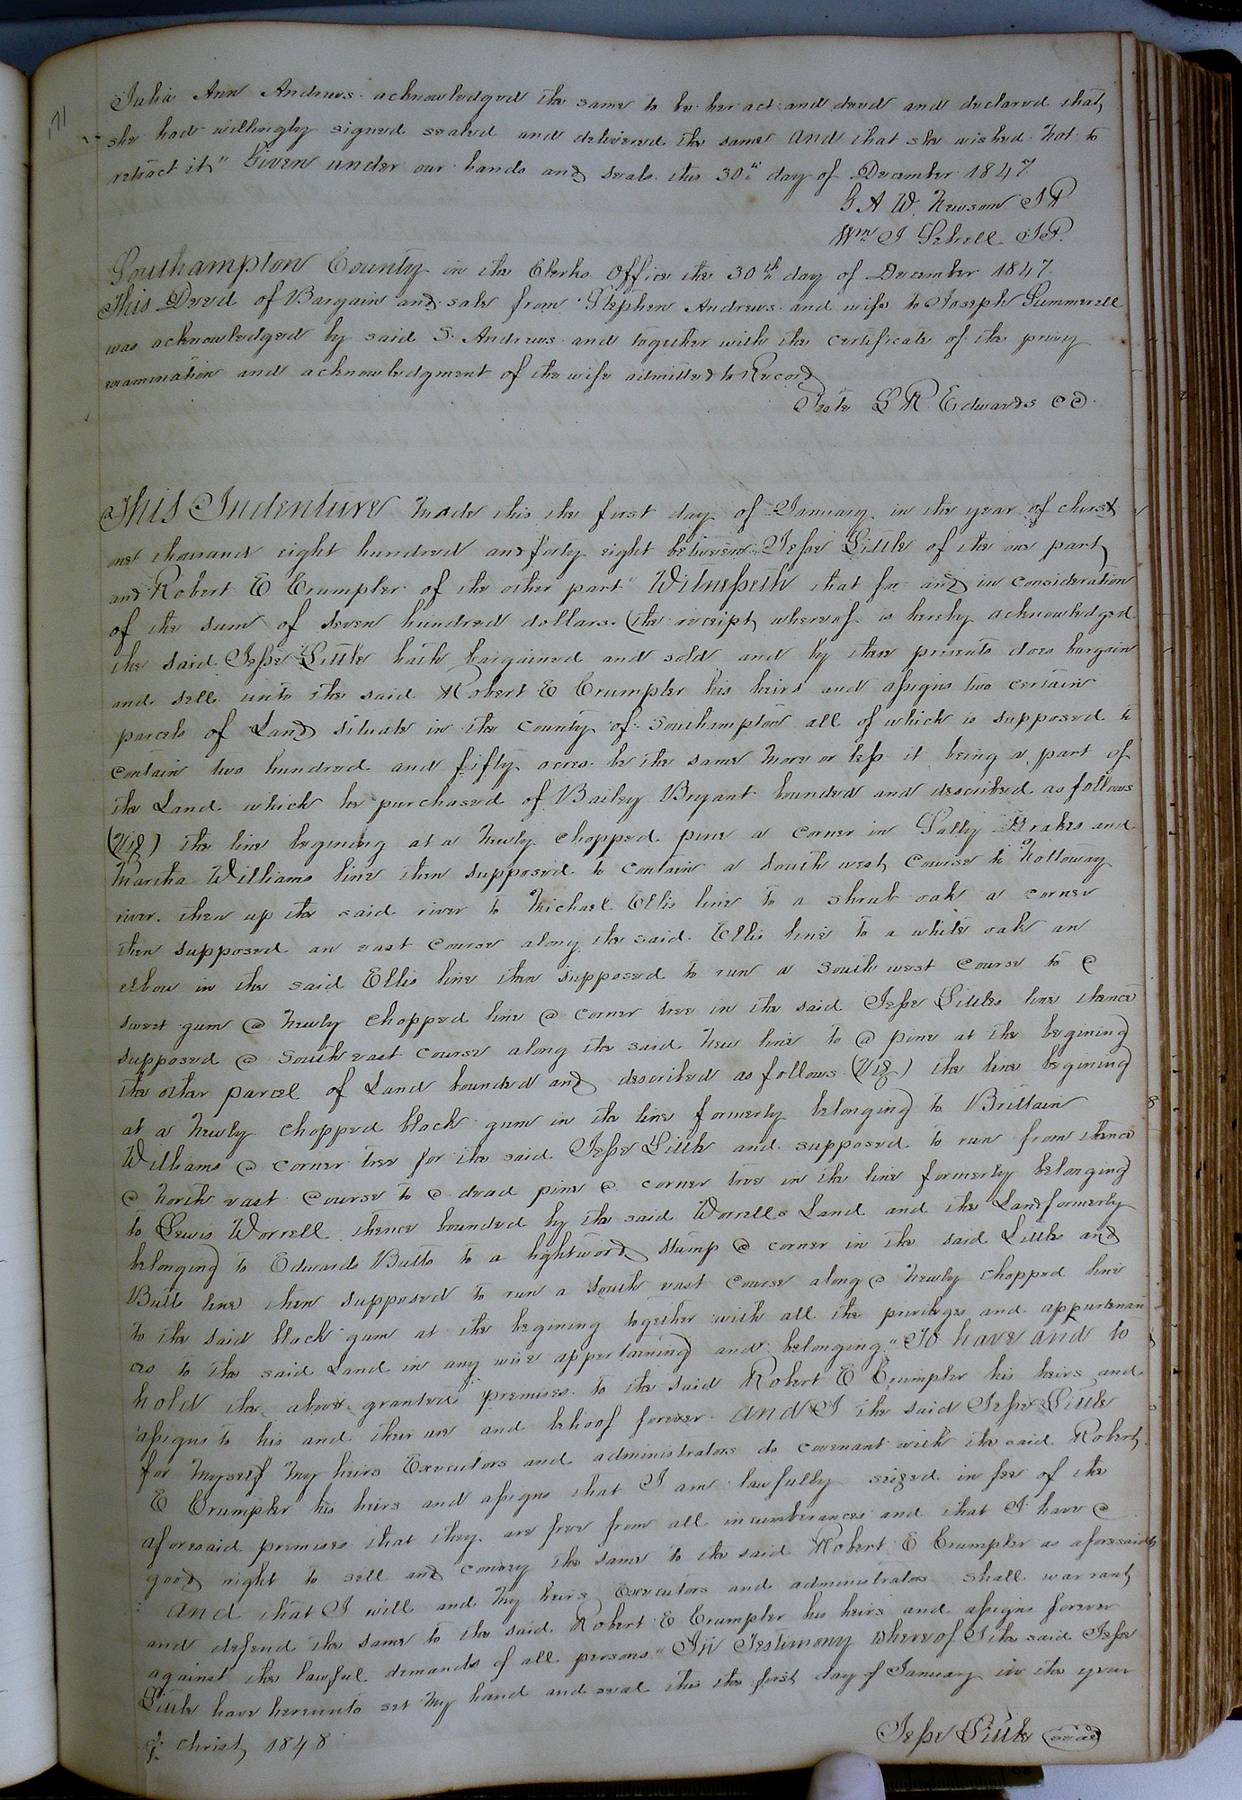 171
Julia Ann Andrews acknowledged the same to be her act and deed and declared that
she had willingly signed sealed and delivered the same And that she wished not to
retract it" Given under our hands and seals this 30th day of December 1847
G A W. Newsom JP
Wm J Sebrell JP.
Southampton County in the Clerks Office the 30th day of December 1847
This Deed of Bargain and sale from Stephen Andrews and wife to Joseph Summerell
was acknowledged by said S. Andrews and together with the certificate of the privy
examination and acknowledgment of the wife admitted to Record
Teste L R Edwards CC.
This Indenture made this the first day of January in the year of christ
one thousand eight hundred and forty eight between Jesse Little of the one part
and Robert E Crumpler of the other part" Witnesseth that for and in consideration
of the sum of seven hundred dollars (the receipt whereof is hereby acknowledged
the said Jesse Little hath bargained and sold and by these presents does bargain
and sell unto the said Robert E Crumpler his heirs and assigns two certain
parcels of Land situate in the County of Southampton all of which is supposed to
contain two hundred and fifty acres be the same more or less it being a part of
the Land which he purchased of Bailey Bryant bounded and described as follows
(Viz) the line begining at a newly chopped pine a corner in Sally Drakes and
Martha Williams line then supposed to contain a south west course to Nolloway
river. then up the said river to Michael Ellis line to a shrub oak a corner
then supposed an east course along the said Ellis line to a white oak an
elbow in the said Ellis line then supposed to run a south west course to a
sweet gum a newly chopped line a corner tree in the said Jesse Littles line thence
supposed a South east course along the said new line to a pine at the begining
the other parcel of Land bounded and described as follows (Viz) the line begining
at a newly chopped black gum in the line formerly belonging to Brittain
Williams a corner tree for the said Jesse Little and supposed to run from thence
a North east course to a dead pine a corner tree in the line formerly belonging
to Lewis Worrell thence bounded by the said Worrells Land and the Land formerly
belonging to Edwards Butts to a lightwood stump a corner in the said Little and
Butts line then supposed to run a South east course along a newly chopped line
to the said black gum at the begining together with all the privileges and appurtenan
ces to the said Land in any wise appertaining and belonging" To have and to
hold the above granted premises to the said Robert E Crumpler his heirs and
assigns to his and their use and behoof forever And I the said Jesse Little
for myself my heirs Executors and administrators do covenant with the said Robert
E Crumpler his heirs and assigns that I am lawfully seized in fee of the
aforesaid premises that they are free from all incumberances and that I have a
good right to sell and convey the same to the said Robert E Crumpler as aforesaid
And that I will and my heirs Executors and administrators shall warrant
and defend the same to the said Robert E Crumpler his heirs and assigns forever
against the lawful demands of all persons" In Testimony whereof I the said Jesse
Little have hereunto set my hand and seal this the first day of January in the year
of christ 1848
Jesse Little (seal)